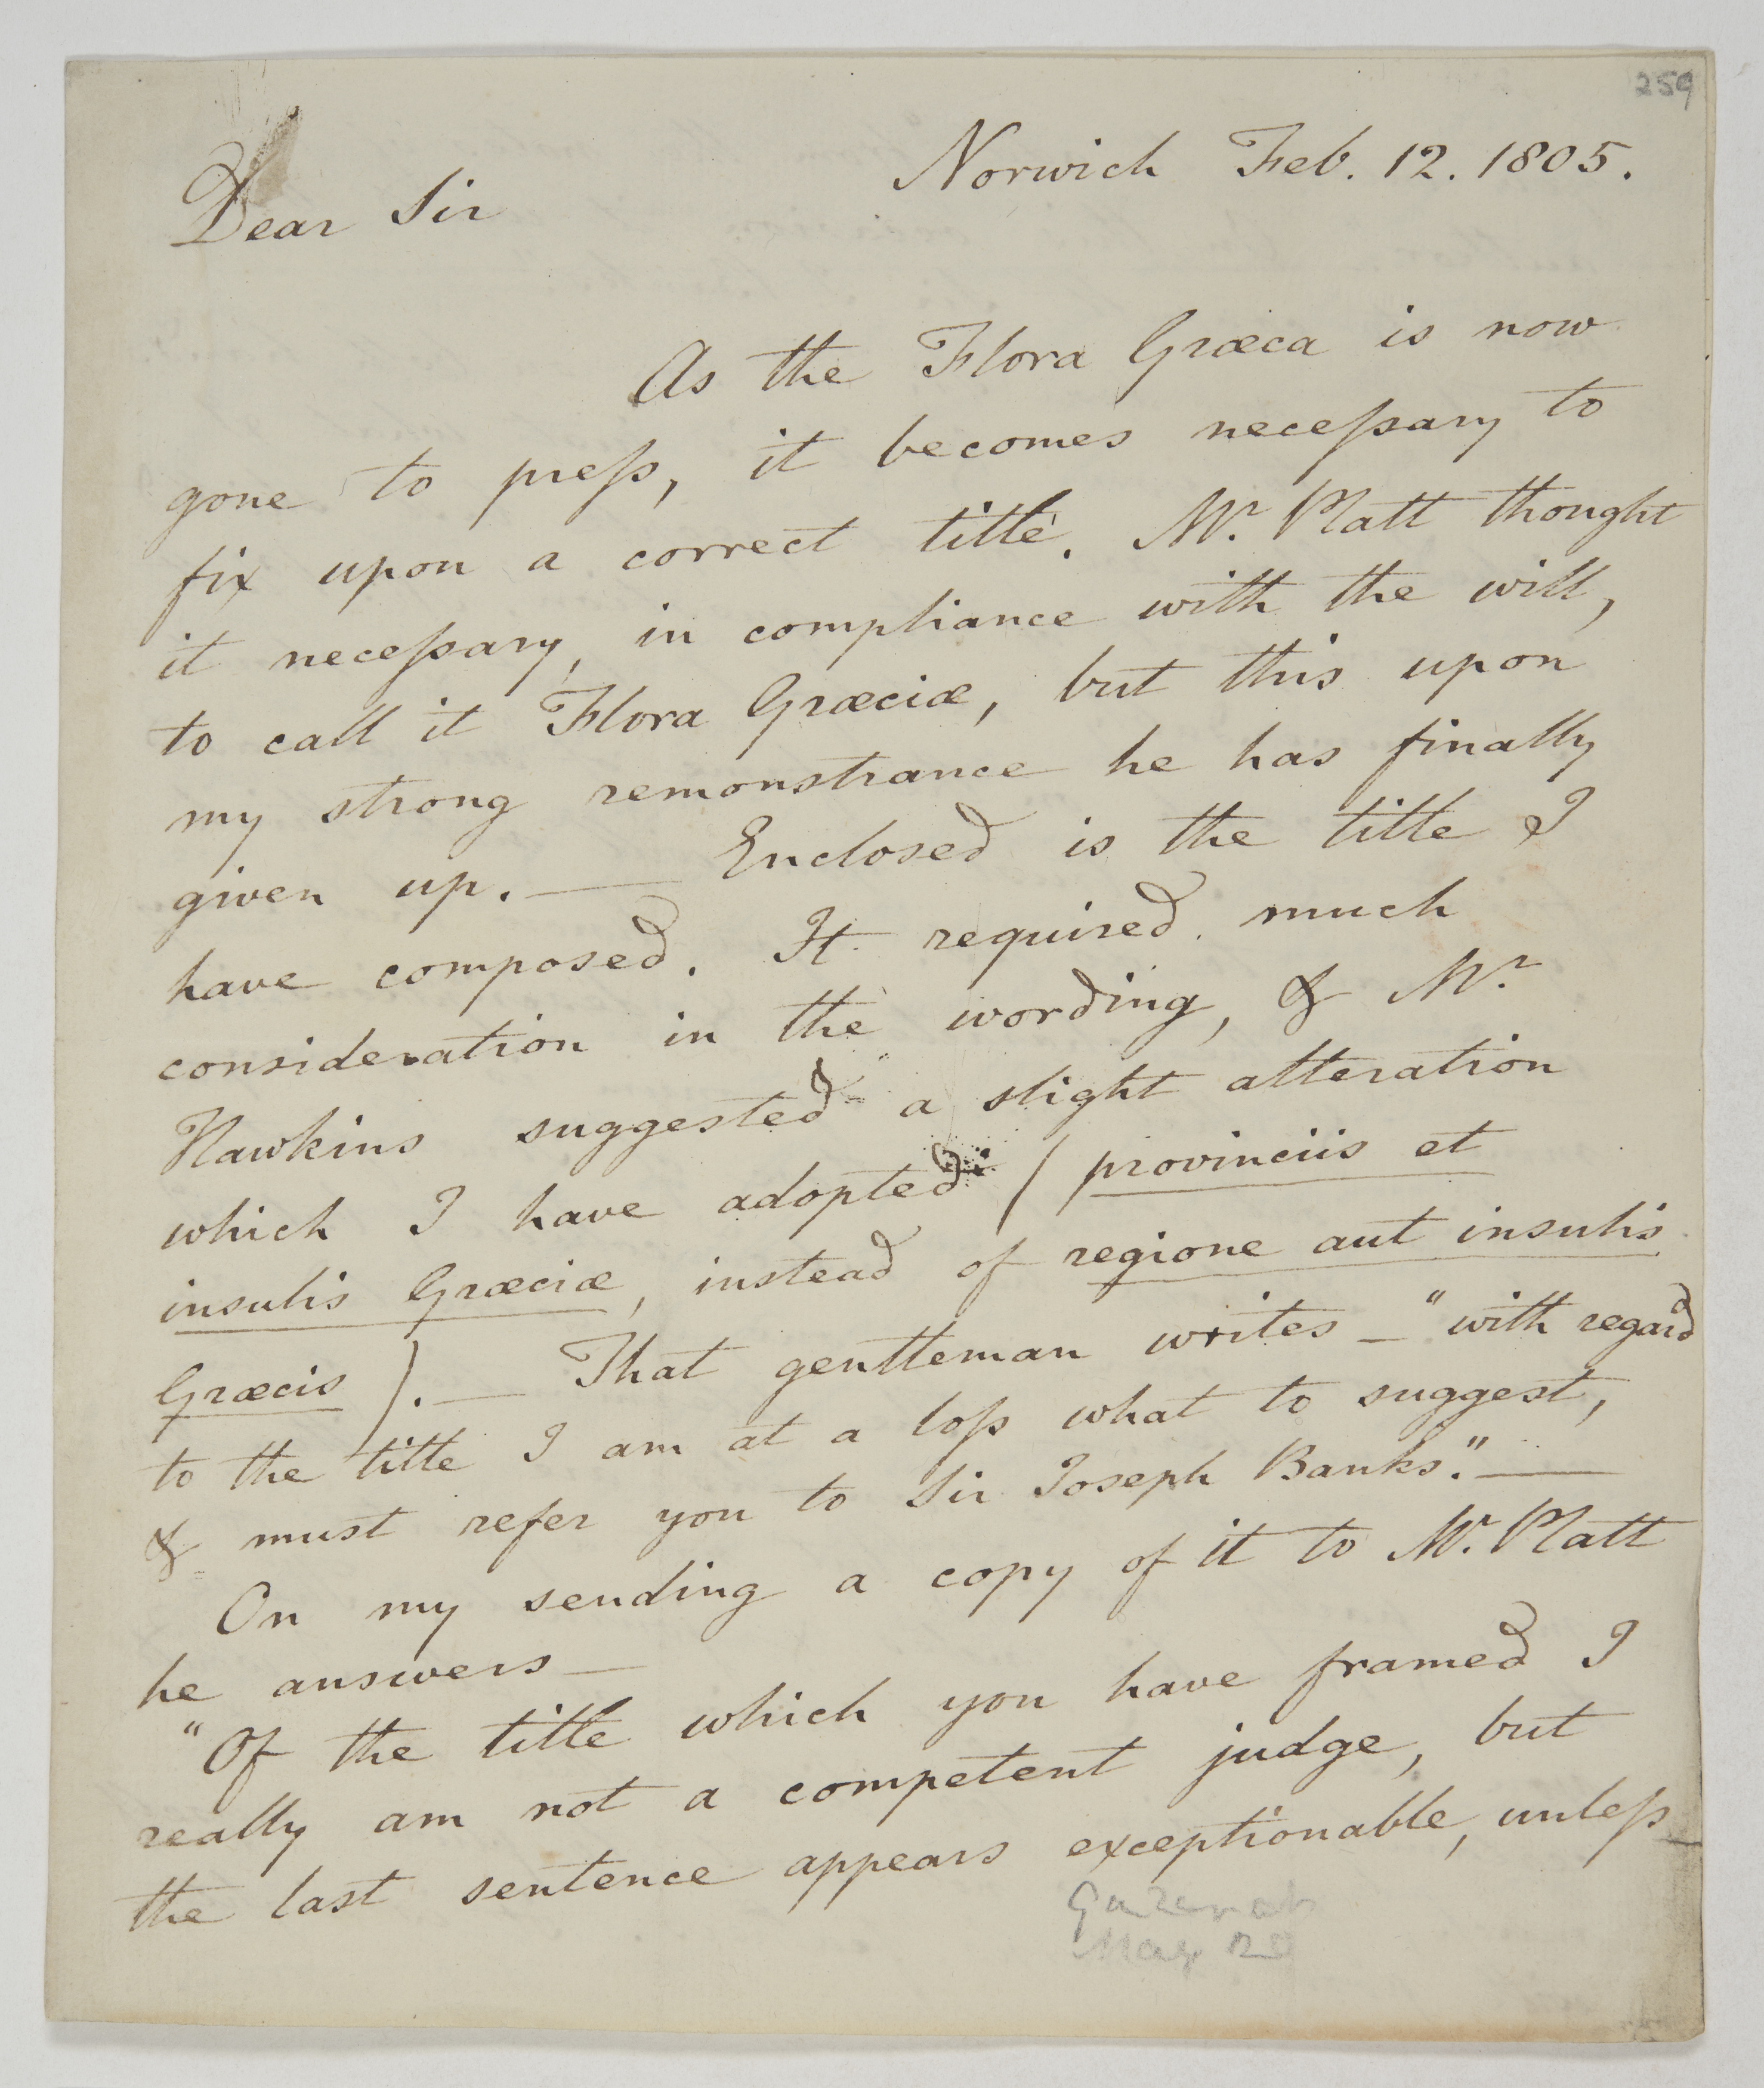 259
Norwich Feb. 12. 1805.
Dear Sir
As the Flora Græca is now
gone to preſs, it becomes neceſsary to
fix upon a correct title. Mr. Platt thought
it neceſsary, in compliance with the will,
to call it Flora Græciæ, but this upon
my strong remonstrance he has finally
given up. — Enclosed is the title I
have composed. It required much
consideration in the wording, & Mr.
Hawkins suggested a slight alteration
which I have adopted (provinciis et
insulis Græciæ, instead of regione aut insulis
Græcis). — That gentleman writes — "with regard
to the title I am at a loſs what to suggest,
& must refer you to Sir Joseph Banks." —
On my sending a copy of it to Mr. Platt
he answers —
"Of the title which you have framed I
really am not a competent judge, but
the last sentence appears exceptionable, unleſs
May 20